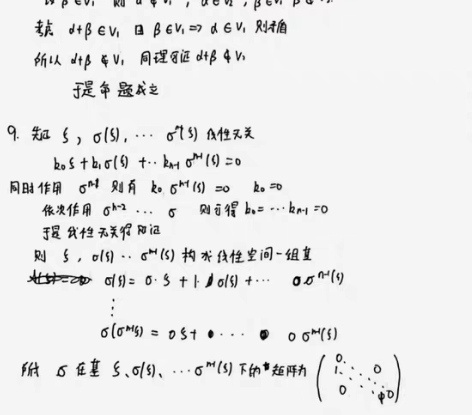 若 α+β∈V₁ 且 β∈V₁ ⇒ α∈V₁ 则矛盾
所以 α+β∉V₁ 同理可证 α+β∉V₁
于是命题成立
9. 先证 ξ, σ(ξ), ⋯ σⁿ⁻¹(ξ) 线性无关
k₀ξ+k₁σ(ξ)+⋯kₙ₋₁σⁿ⁻¹(ξ)=0
同时作用 σⁿ⁻¹ 则有 k₀σⁿ⁻¹(ξ)=0 k₀=0
依次作用 σⁿ⁻² ⋯ σ 则可得 k₀=⋯kₙ₋₁=0
于是线性无关得证
则 ξ, σ(ξ)⋯σⁿ⁻¹(ξ) 构成线性空间一组基
σ(ξ)=0·ξ+1·σ(ξ)+⋯ 0σⁿ⁻¹(ξ)
⋮
σ(σⁿ⁻¹(ξ)=0ξ+⋯ 0σⁿ⁻¹(ξ)
所以 σ 在基 ξ、σ(ξ)、⋯σⁿ⁻¹(ξ) 下的矩阵为 (0 1 ⋱ 0 0 ⋱ 0)